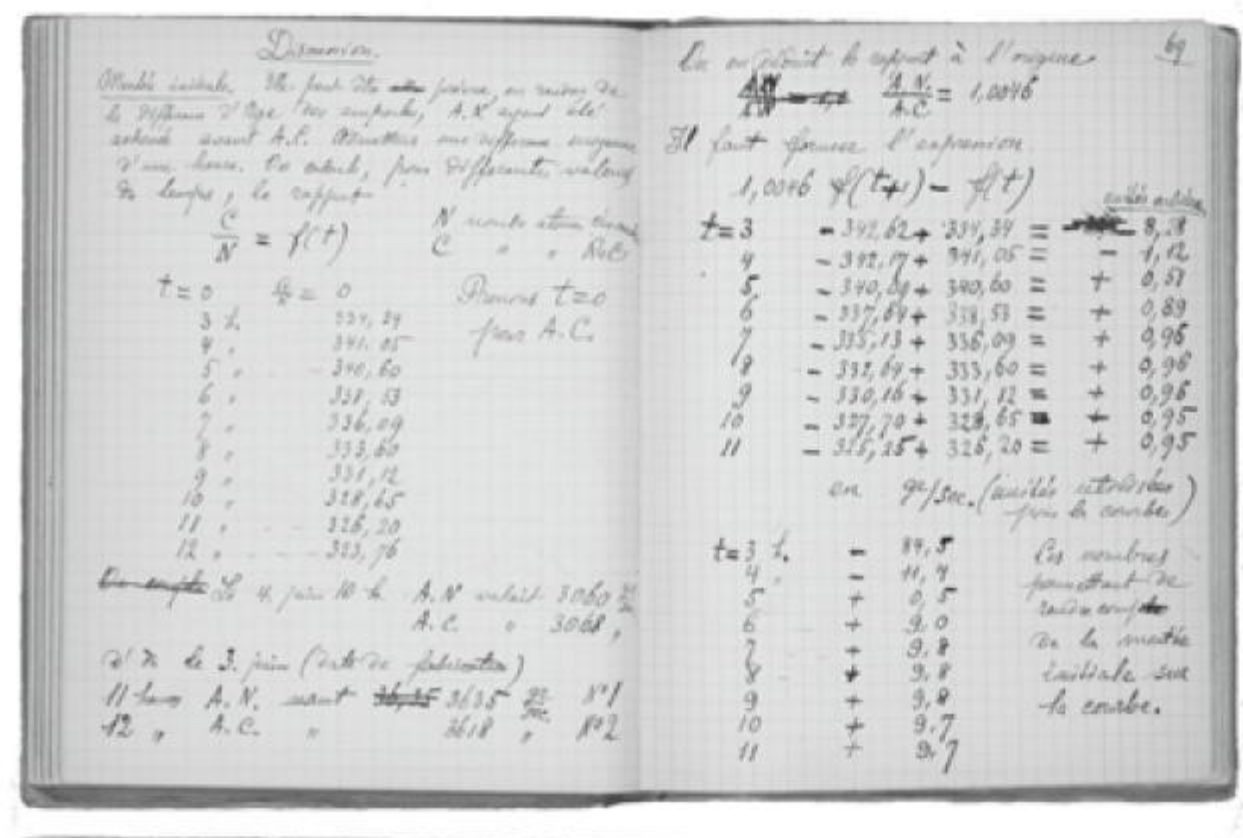 Discussion.
Montée initiale. Elle peut être prévue, en raison de
la différence d'âge des ampoules, A.N ayant été
scellée avant A.C. Admettons une différence moyenne
d'une heure. On calcule, pour différentes valeurs
du temps, le rapport
C/N = f(t)
N nombre atomes
C " " RaC
t = 0 = 0
Prenons t=0
pour A.C.
3 h. 334,34
4 " 341,05
5 " 340,60
6 " 338,53
7 " 336,09
8 " 333,60
9 " 331,12
10 " 328,65
11 " 326,20
12 " 323,76
Le 4. juin 10 h A.N valait 3060
A.C. " 3068 "
le 3. juin (date de fabrication)
11 heures A.N. valait 3635 gr/sec N°1
12 " A.C. " 3618 " N°2
69
On en déduit le rapport à l'origine
A.N./A.C = 1,0046
Il faut former l'expression
1,0046 f(t+1) - f(t)
unités arbitr.
t=3 - 342,62 + 334,34 = - 8,28
4 - 342,17 + 341,05 = - 1,12
5 - 340,09 + 340,60 = + 0,51
6 - 337,64 + 338,53 = + 0,89
7 - 335,13 + 336,09 = + 0,96
8 - 332,64 + 333,60 = + 0,96
9 - 330,16 + 331,12 = + 0,96
10 - 327,70 + 328,65 = + 0,95
11 - 325,25 + 326,20 = + 0,95
en gr/sec. (unités
pour la courbe)
t=3 h. - 84,5
4 " - 11,4
5 + 0,5
6 + 9,0
7 + 9,8
8 + 9,8
9 + 9,8
10 + 9,7
11 + 9,7
Ces nombres
permettent de
rendre compte
de la montée
initiale sur
la courbe.